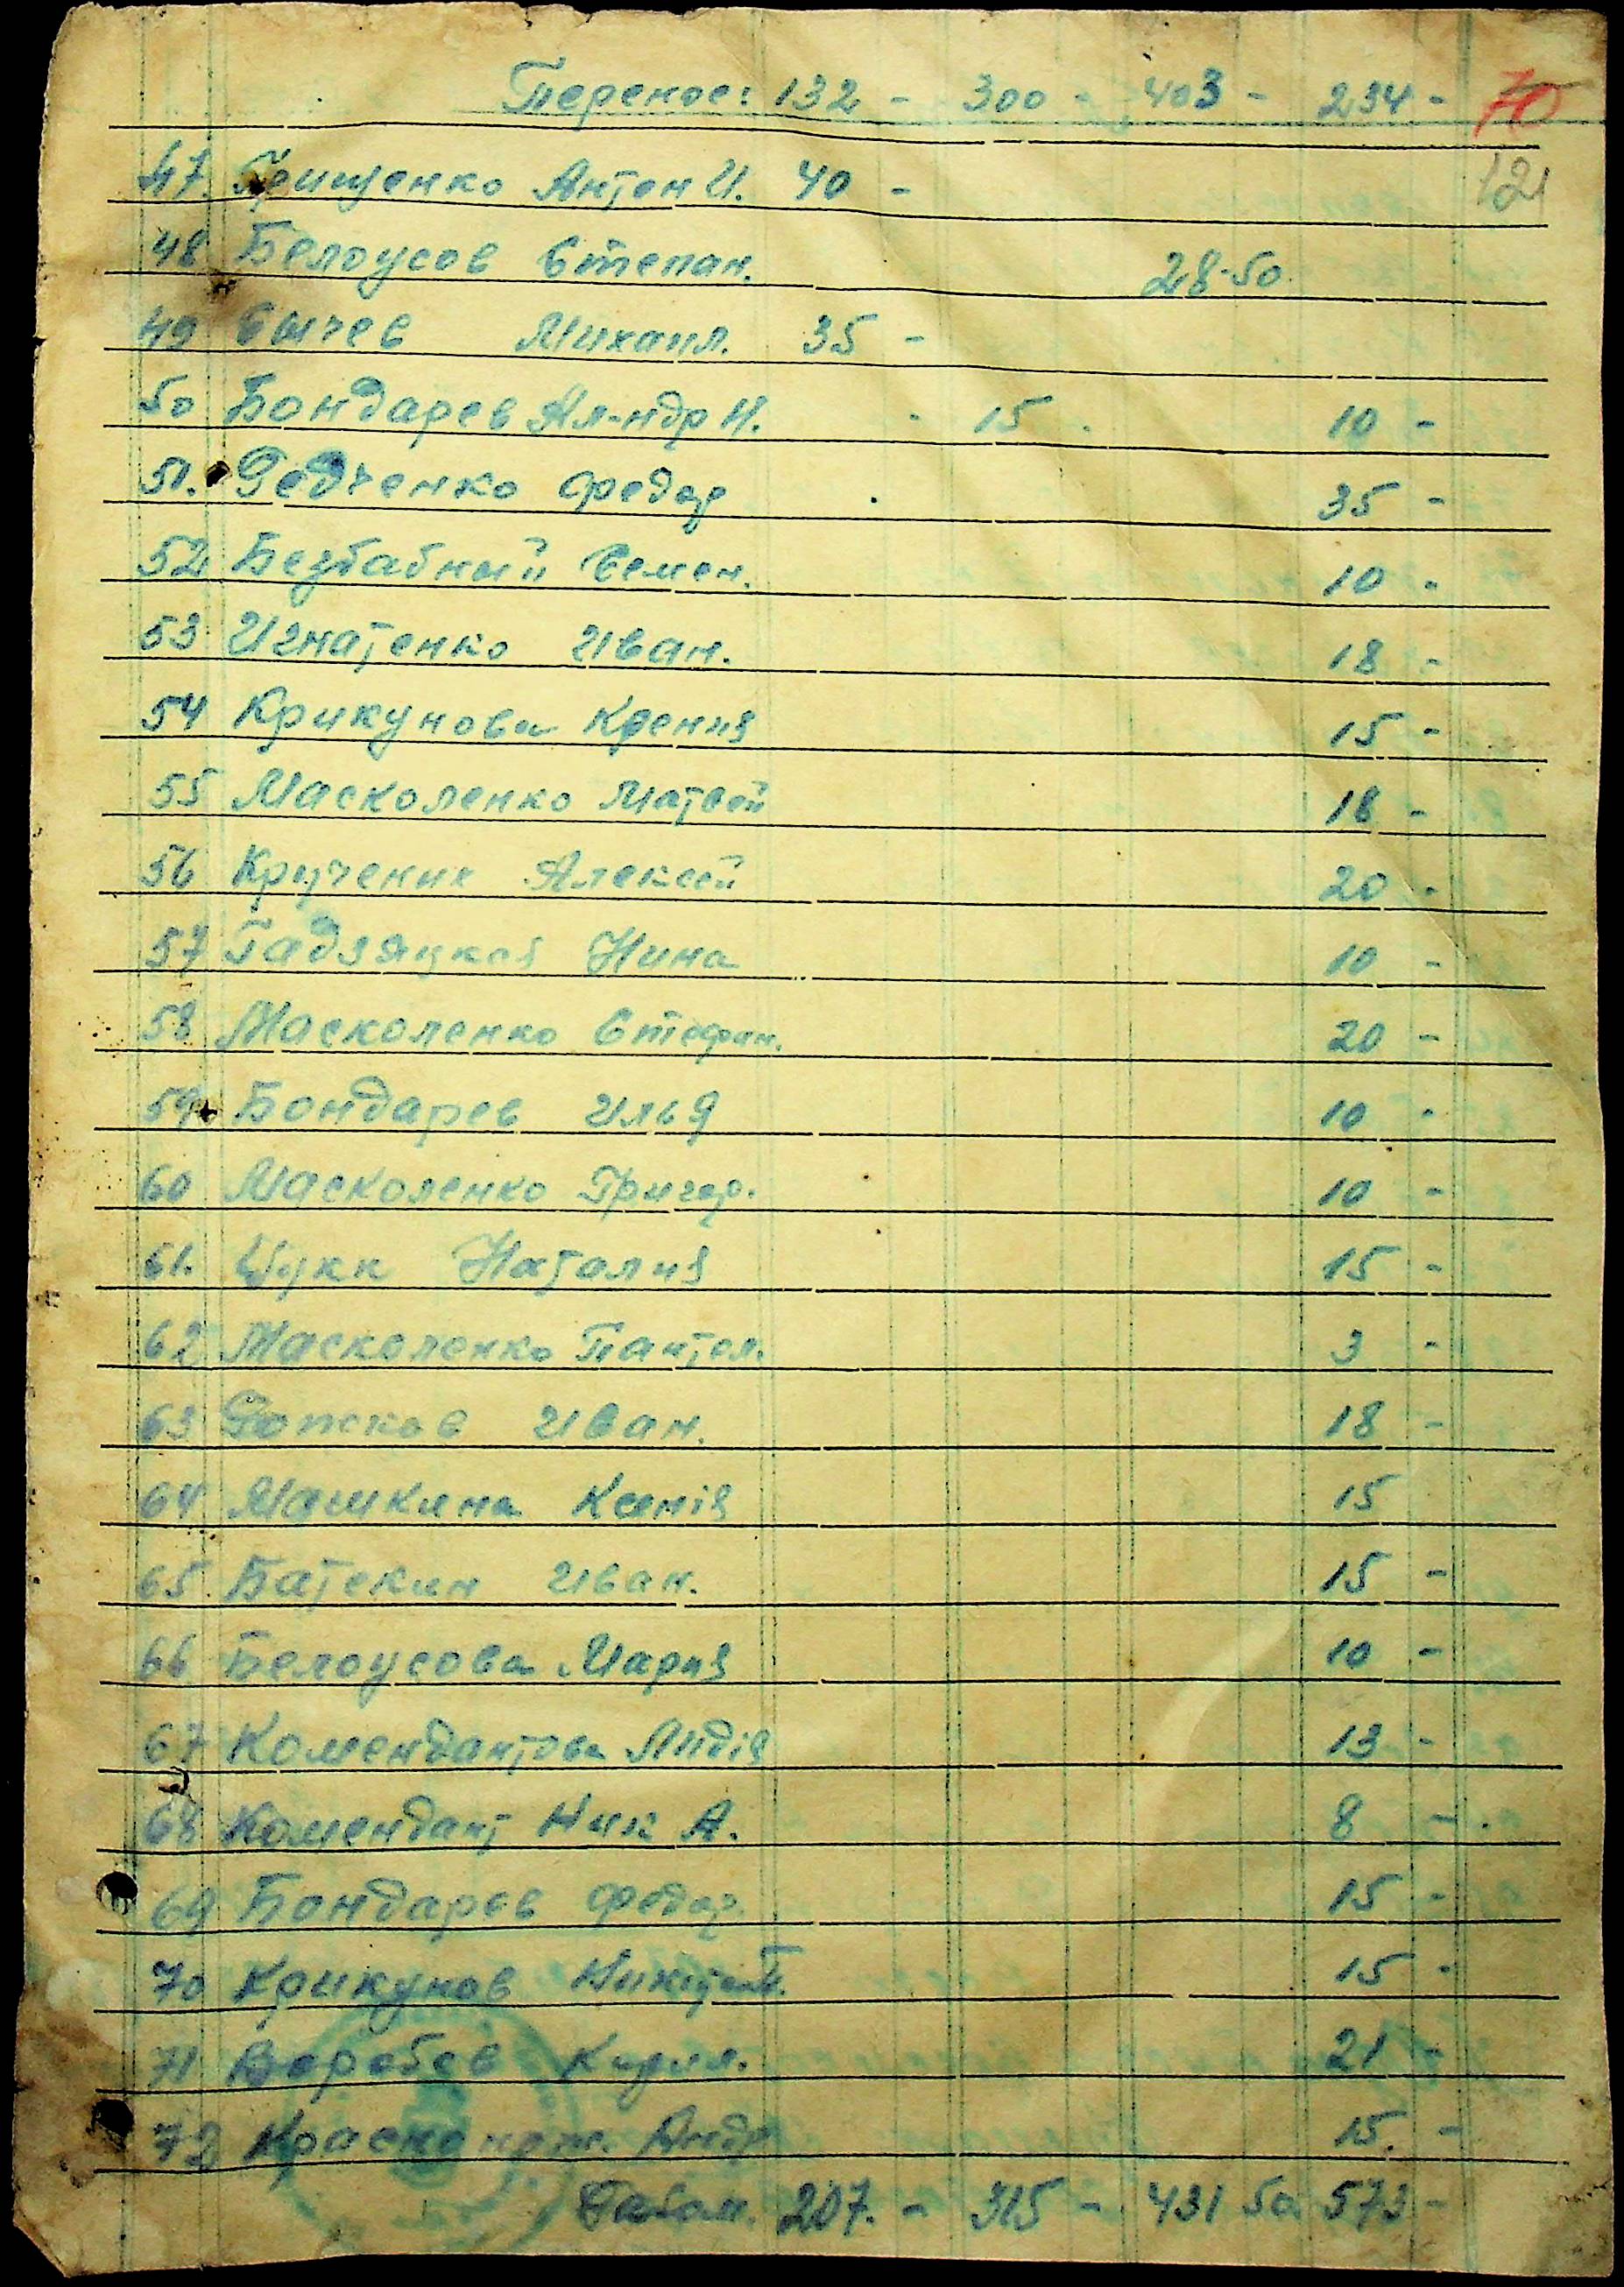 Перенос: 132 - 300 - 403 - 234 - 70
121
47. Грищенко Антон И. 40 -
48 Белоусов Степан. 28-50
49 Сычев Михаил. 35 -
50 Бондарев Ал-ндр И. - 15 - 10 -
51. Редченко Федор 35 -
52 Безбабный Семен. 10 -
53 Игнатенко Иван. 18 -
54 Крикунова Ксения 15 -
55 Масколенко Матвей 18 -
56 Крученик Алексей 20 -
57 Гадзяцкая Нина 10 -
58 Масколенко Стефан. 20 -
59 Бондарев Илья 10 -
60 Масколенко Григор. 10 -
61. Наталия 15 -
62 Масколенко Пантел. 3 -
63 Иван. 18 -
64 Машкина Ксения 15
65. Батекин Иван. 15 -
66 Белоусова Мария 10 -
67 Комендантова Лидія 13 -
68 Комендант Ник А. 8 -
69 Бондарев Федор. 15 -
70 Крикунов 15 -
71 Воробев Кирил. 21 -
72 Андр 15. -
207. - 315 - 431 50 573 -